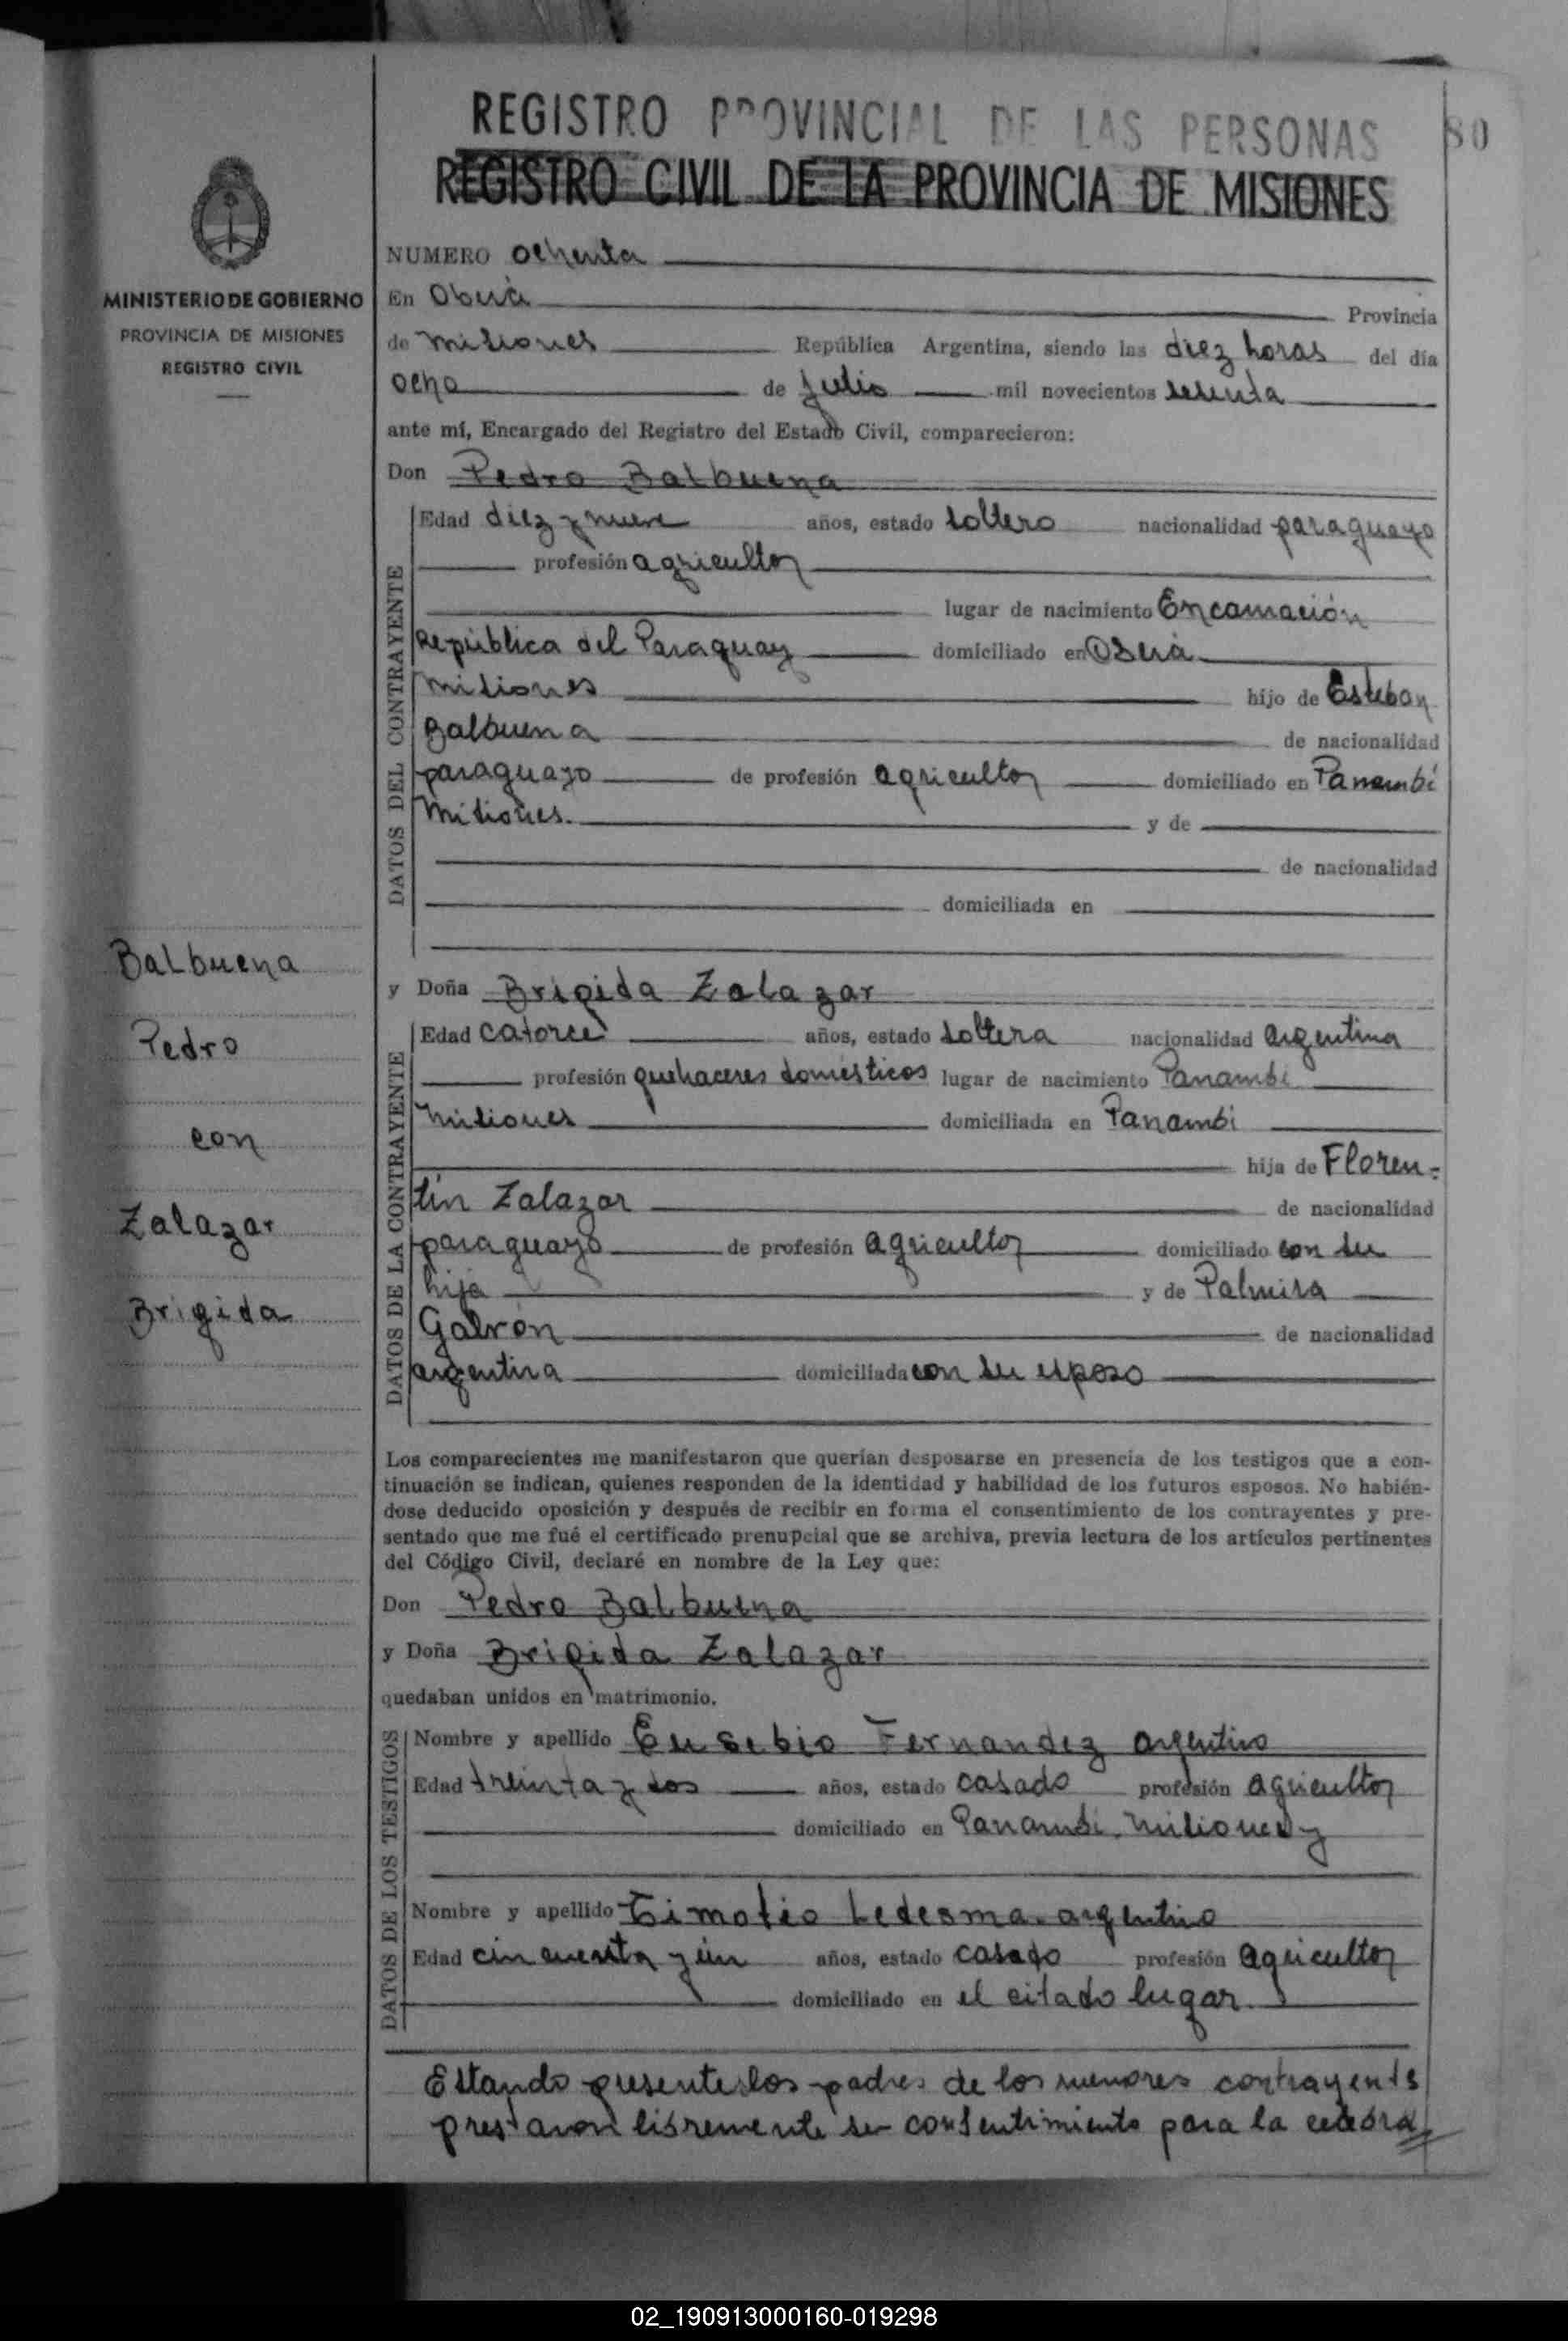 REGISTRO PROVINCIAL DE LAS PERSONAS
80
REGISTRO CIVIL DE LA PROVINCIA DE MISIONES
MINISTERIO DE GOBIERNO
PROVINCIA DE MISIONES
REGISTRO CIVIL
NUMERO ochenta
En Oberá Provincia
de Misiones República Argentina, siendo las diez horas del día
ocho de julio mil novecientos sesenta
ante mí, Encargado del Registro del Estado Civil, comparecieron:
Don Pedro Balbuena
DATOS DEL CONTRAYENTE
Edad diez y nueve años, estado soltero nacionalidad paraguayo
profesión agricultor
lugar de nacimiento Encarnación
República del Paraguay domiciliado en Oberá
Misiones hijo de Esteban
Balbuena de nacionalidad
paraguayo de profesión agricultor domiciliado en Panambí
Misiones. y de
de nacionalidad
domiciliada en
Balbuena
Pedro
con
Zalazar
Brigida
y Doña Brigida Zalazar
DATOS DE LA CONTRAYENTE
Edad catorce años, estado soltera nacionalidad argentina
profesión quehaceres domésticos lugar de nacimiento Panambí
Misiones domiciliada en Panambí
hija de Floren-
tín Zalazar de nacionalidad
paraguayo de profesión agricultor domiciliado con su
hija y de Palmira
Galvón de nacionalidad
argentina domiciliada con su esposo
Los comparecientes me manifestaron que querían desposarse en presencia de los testigos que a con-
tinuación se indican, quienes responden de la identidad y habilidad de los futuros esposos. No habién-
dose deducido oposición y después de recibir en forma el consentimiento de los contrayentes y pre-
sentado que me fué el certificado prenupcial que se archiva, previa lectura de los artículos pertinentes
del Código Civil, declaré en nombre de la Ley que:
Don Pedro Balbuena
y Doña Brigida Zalazar
quedaban unidos en matrimonio.
DATOS DE LOS TESTIGOS
Nombre y apellido Eusebio Fernandez argentino
Edad treinta y dos años, estado casado profesión agricultor
domiciliado en Panambí. Misiones y
Nombre y apellido Timoteo Ledesma. argentino
Edad cincuenta y un años, estado casado profesión agricultor
domiciliado en el citado lugar.
Estando presentes los padres de los menores contrayents
prestaron libremente su consentimiento para la celebra
02_190913000160-019298